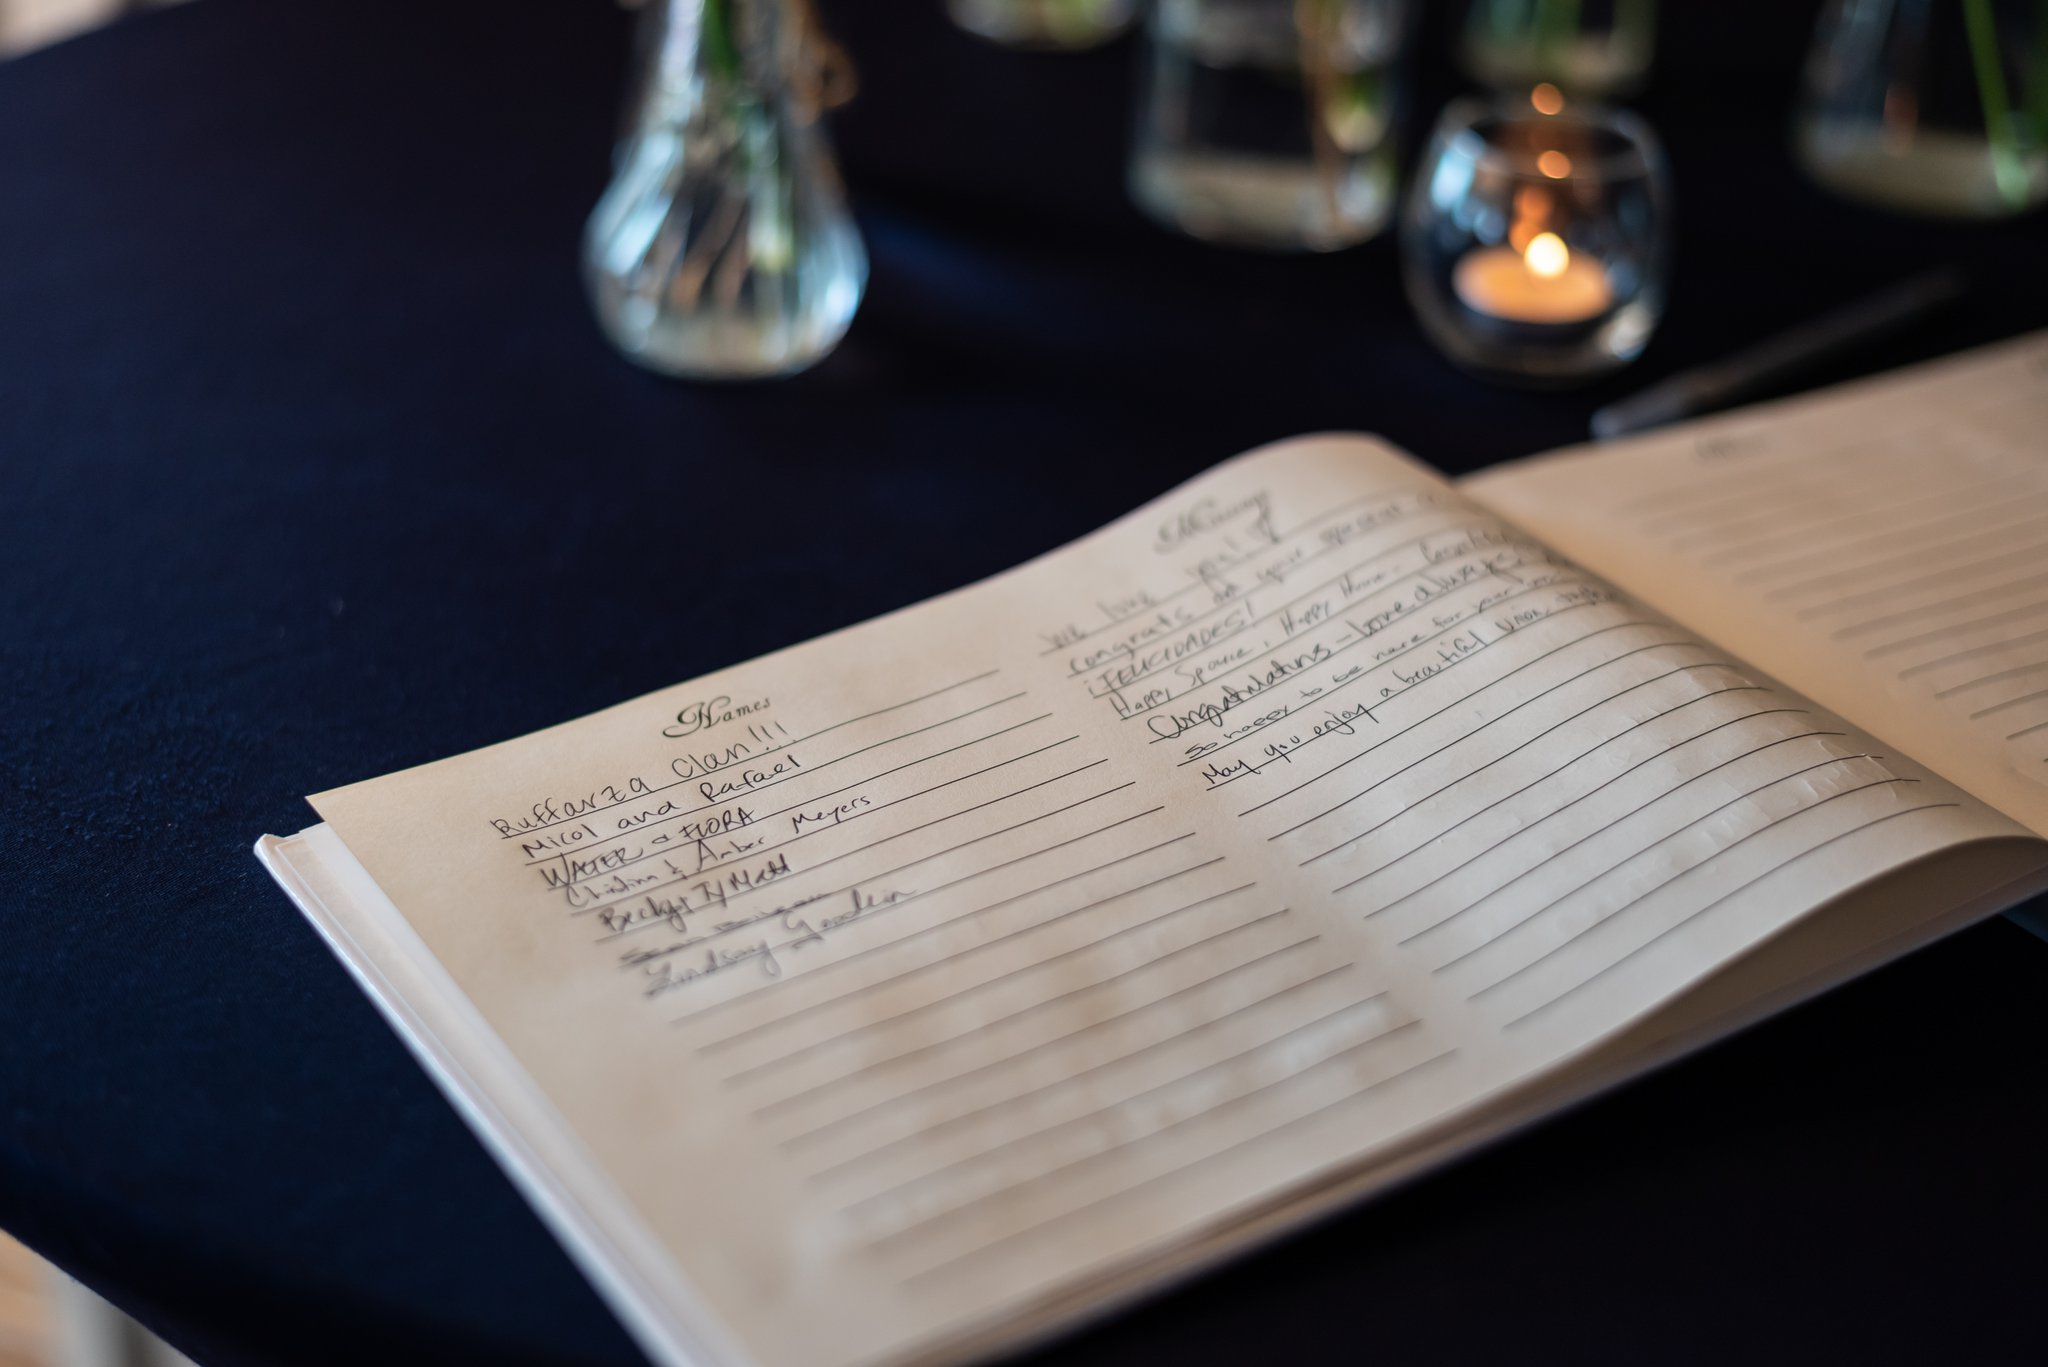 Names
Ruffarza Clan!!!
Micol and Rafael
WALTER & FLORA
Christina & Amber Meyers
Becky & Ty Matt
Lindsay Goodwin
Message
We love you!
Congrats on your special
¡FELICIDADES!
Happy Spouse, Happy Home -
Congratulations - Love always
So happy to be here for your
May you enjoy a beautiful union